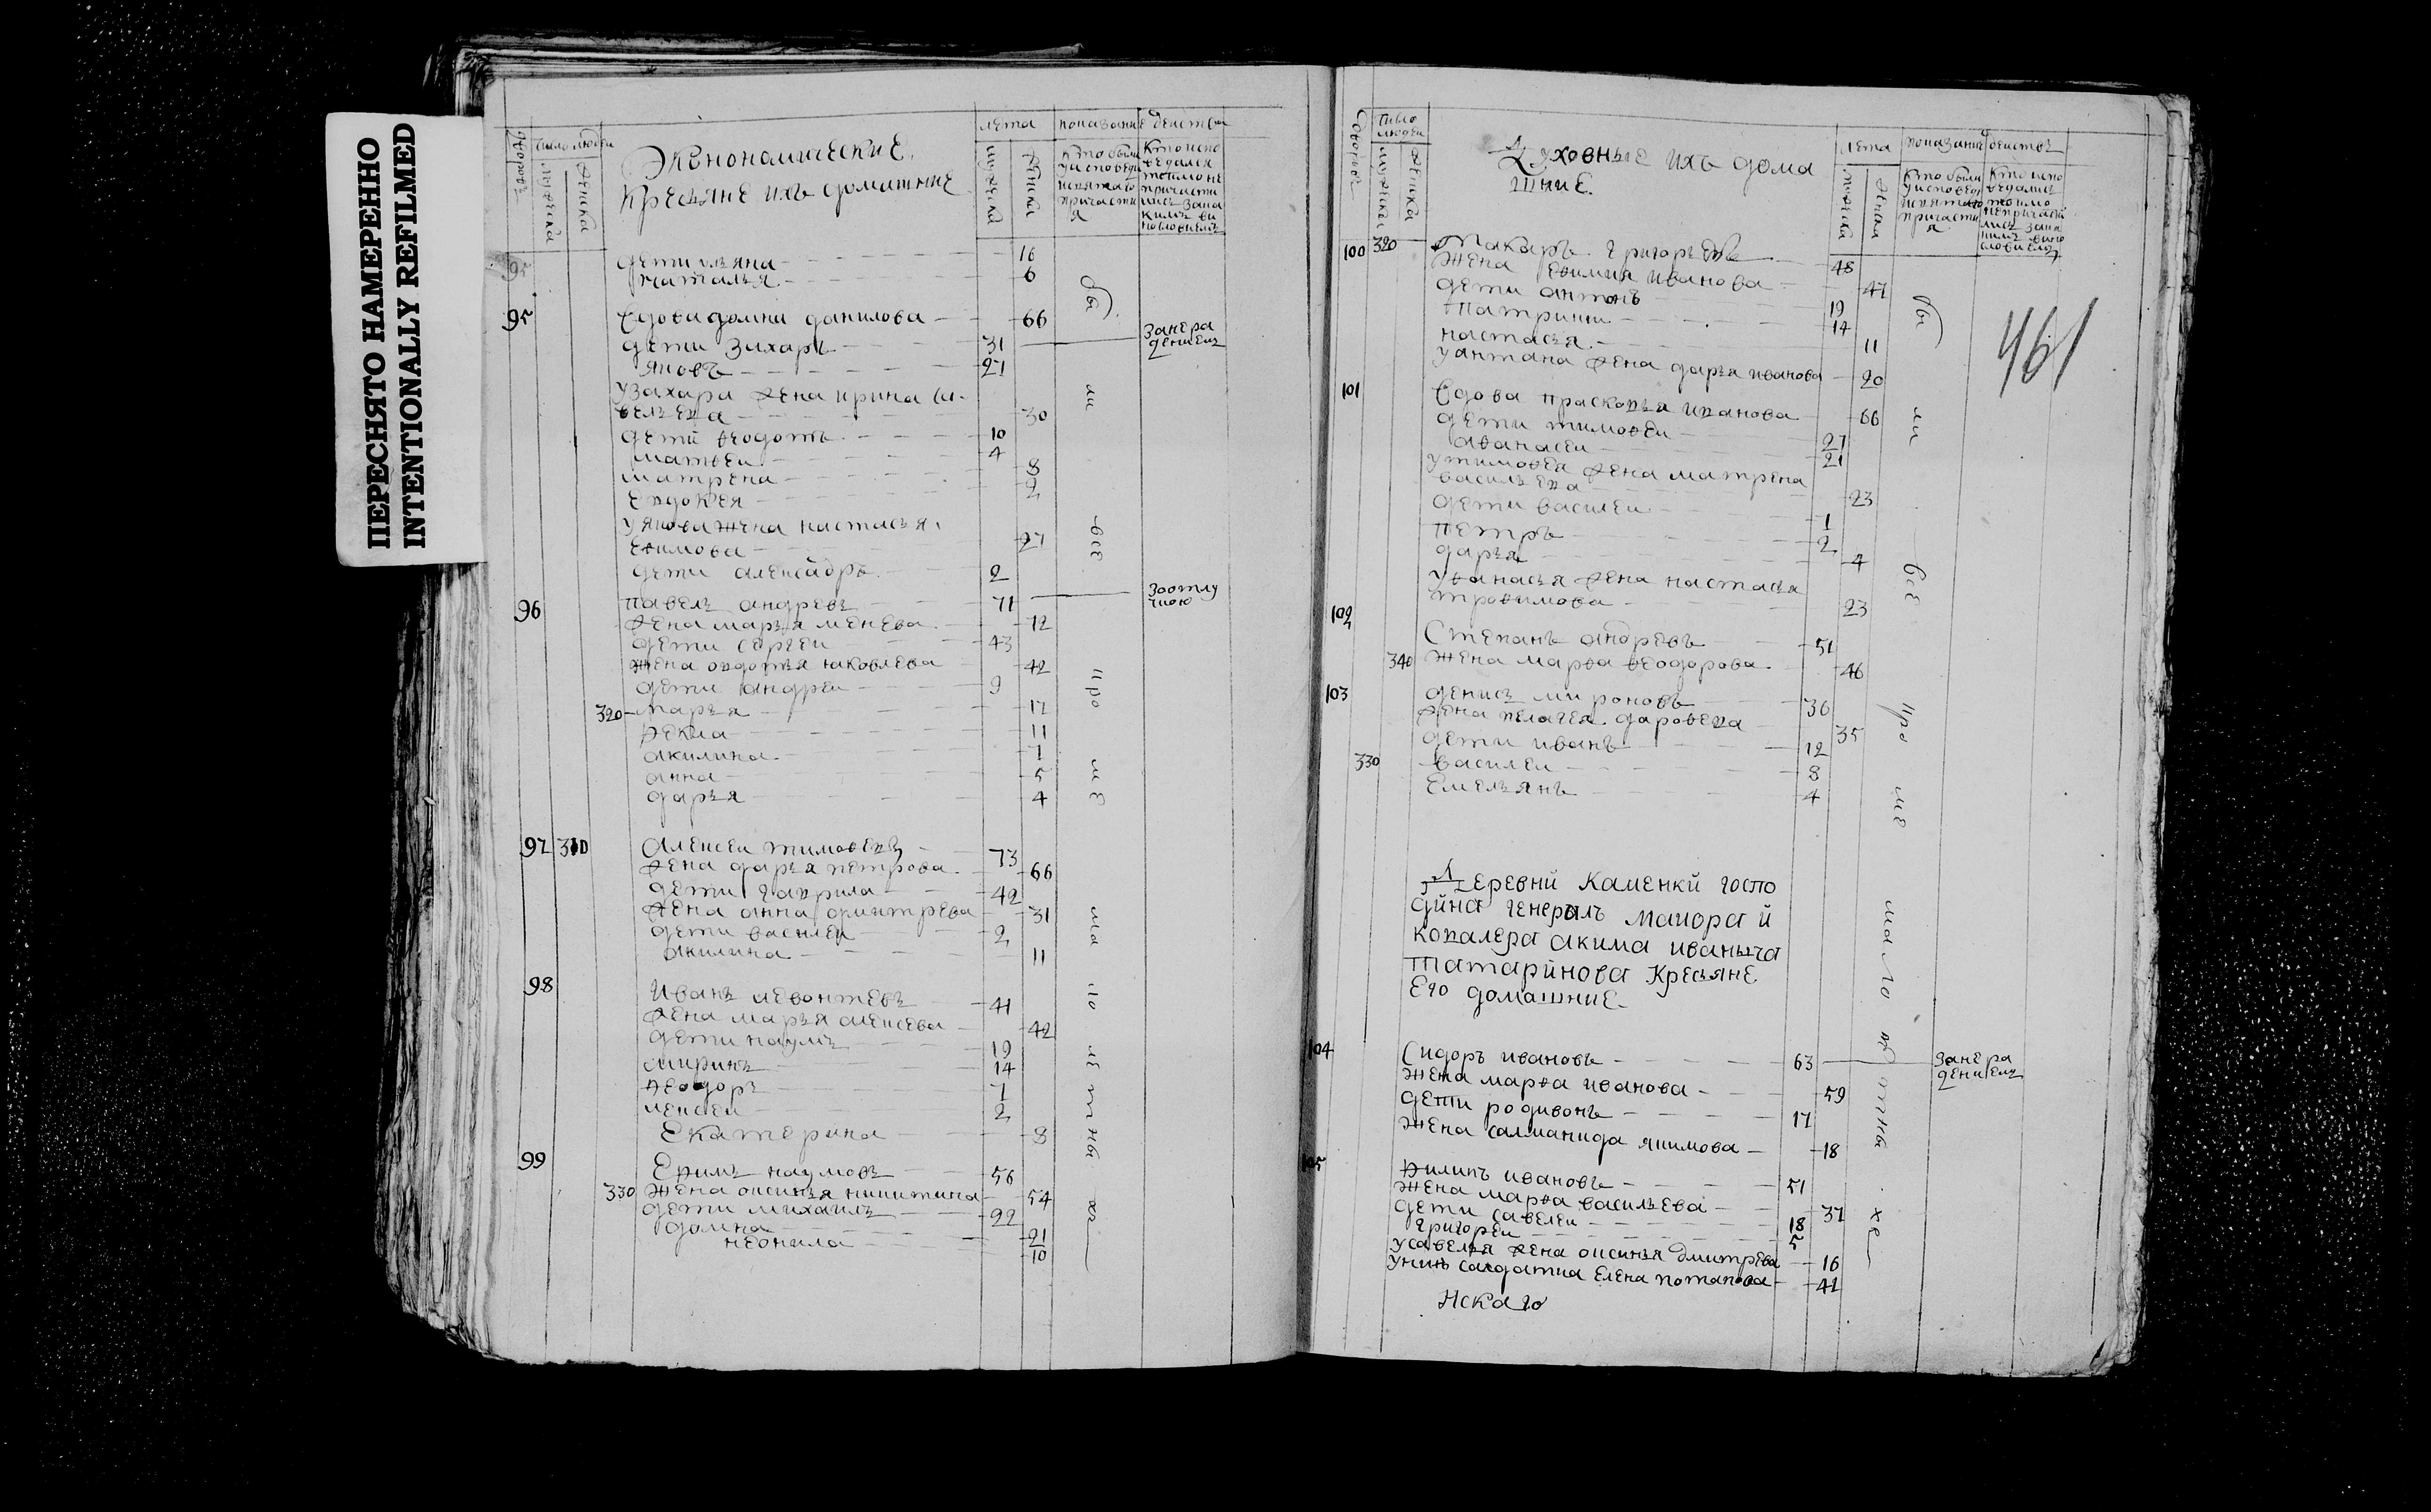 ПЕРЕСНЯТО НАМЕРЕННО
INTENTIONALLY REFILMED
лета показание действа
число людей
мужеска
женска
Экономические
Крестьяне ихъ домашние
мужеска
женска
дети ульяна 16
наталья 6
95 вдова домна данилова 66
дети захаръ 31 занера
дениемъ
яковъ 27
у захара жена ирина са
вельева 30
дети ѳеодотъ 10
матвеи 4
матрена 8
евдокея 2
у якова жена настасья
еѳимова 27
дети алексадръ 2
96 павелъ андревъ 71 заотлу
чкою
жена марья
дети сергеи 43
жена овдотья яковлева 42
дети андреи 9
320 марья 17
ѳекла 11
акилина 7
анна 5
дарья 4
97 310 алексеи тимоѳевъ 73
жена дарья петрова 66
дети гаврила 42
жена анна дмитрева 31
дети василеи 2
акилина 11
98 иванъ левонтевъ 41
жена марья алексева 42
дети наумъ 19
миринъ 14
ѳеодоръ 7
алексеи 2
Екатерина 8
99 Еѳимъ наумовъ 56
330 жена оксинья никитина 54
дети михаилъ 22
домна 21
неонила 10
бы
ли
все
про
ме
ма
ло
летны
хъ
число людеи
мужеска
женска
Духовные ихъ дома
шние
лета показание действъ
мужеска
женска
461
100 320 Макаръ Григорьевъ 48
жена еѳимия иванова 47
дети антонъ 19
14
настасья 11
у антона жена дарья иванова 20
101 вдова прасковья иванова 66
дети тимоѳеи 27
аѳанасеи 21
у тимоѳея жена матрена
васильева 23
дети василеи 1
петръ 2
дарья 4
у ѳанасья жена настасья
троѳимова 23
102 Степанъ андревъ 51
340 жена марѳа ѳеодорова 46
103 денисъ мироновъ 36
жена пелагея 35
дети иванъ 12
330 василеи 8
Емельянъ 4
бы
ли
все
про
ме
мало
летны
хъ
Деревни Каменки госпо
дина генералъ маиора и
ковалера акима иваныча
татаринова Кресьяне
Его домашние
104 Сидоръ ивановъ 63 занера
дениемъ
жена марѳа иванова 59
дети родивонъ 17
жена салманида якимова 18
105 Ѳилипъ ивановъ 51
жена марѳа васильева 37
дети савелеи 18
григореи 5
у савелья жена оксинья дмитрева 16
у нихъ салдатка елена потапова 41
нскаго